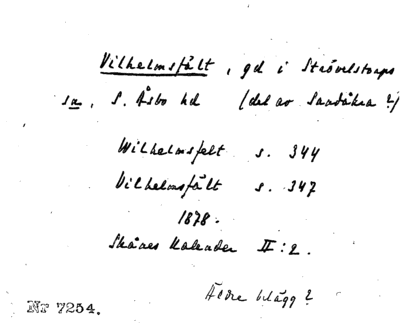 Vilhelmsfält, gd i Strövelstorps
sn, S. Åsbo hd (del av Sandåkra?)
Wilhelmsfelt s. 344
Vilhelmsfält s. 347
1878.
Skånes Kalender II:2.
Äldre belägg?
Nr 7254.